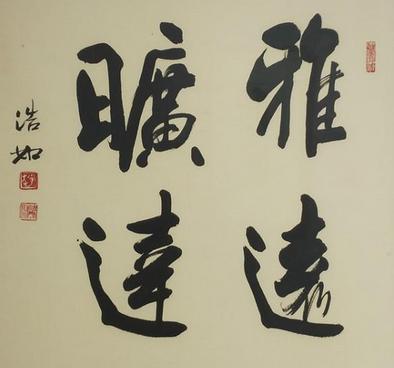 雅遠
曠達
浩如